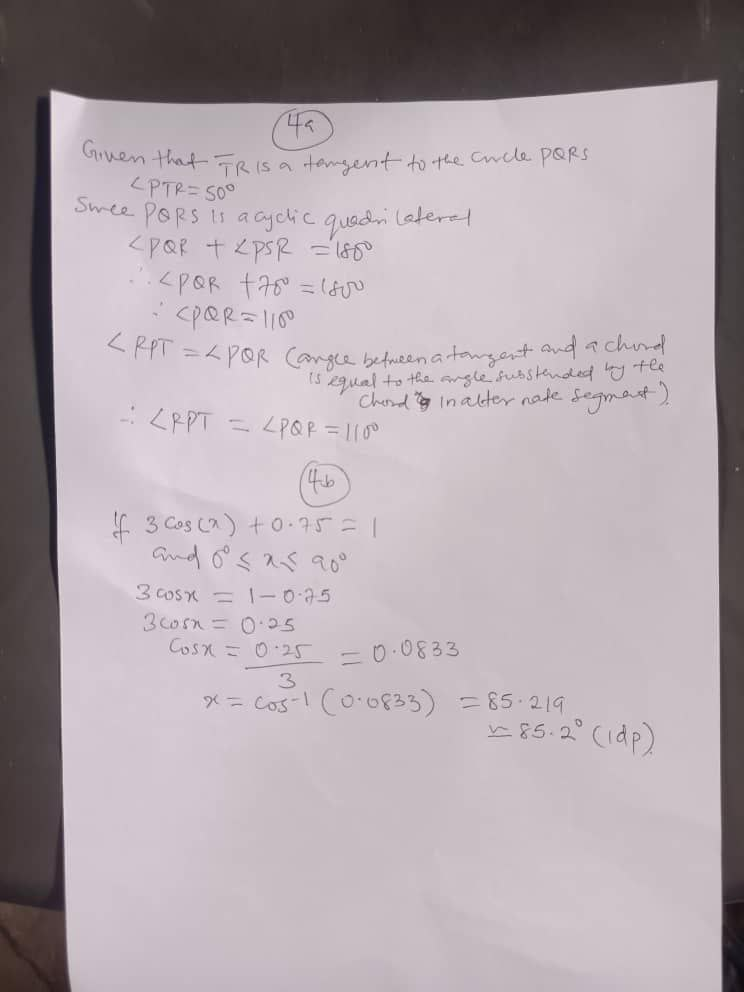 4a
Given that TR is a tangent to the circle PQRS
∠PTR = 50°
Since PQRS is a cyclic quadrilateral
∠PQR + ∠PSR = 180°
∴ ∠PQR + 70° = 180°
∴ ∠PQR = 110°
∠RPT = ∠PQR (angle between a tangent and a chord
is equal to the angle substended by the
chord in alternate segment)
∴ ∠RPT = ∠PQR = 110°
4b
If 3cos(x) + 0.75 = 1
and 0° ≤ x ≤ 90°
3cosx = 1 - 0.75
3cosx = 0.25
Cosx = 0.25 = 0.0833
3
x = cos-1 (0.0833) = 85.219
≃ 85.2° (1dp)